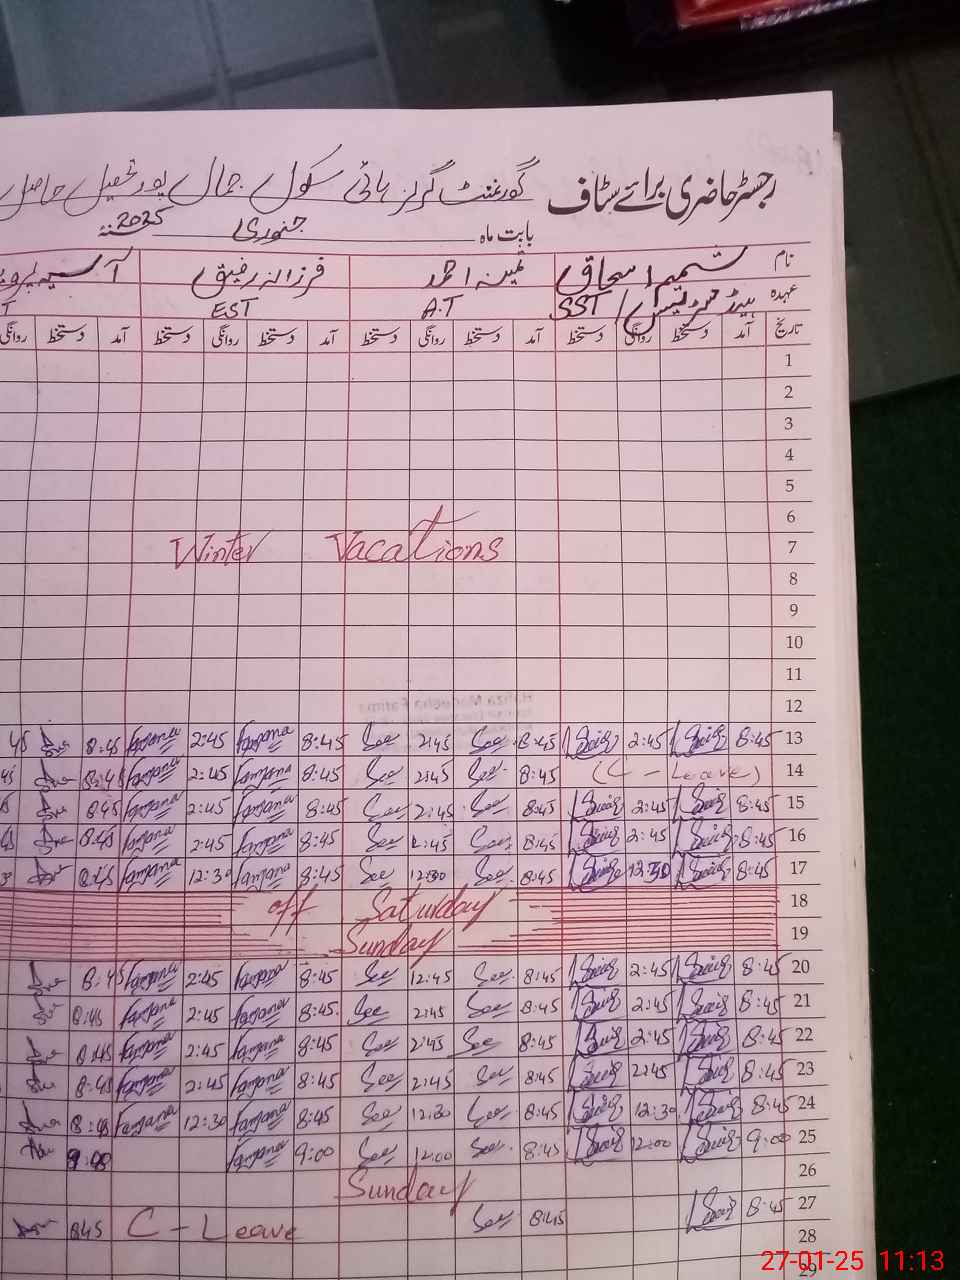 رجسٹر حاضری برائے سٹاف گورنمنٹ گرلز ہائی سکول جمال پور تحصیل حاصل
بابت ماہ جنوری 2025
نام شمیم اسحاق ثمینہ احمد فرزانہ رفیق آسیہ پروین
عہدہ ہیڈ مسٹریس / SST A.T EST T
تاریخ آمد دستخط روانگی دستخط آمد دستخط روانگی دستخط آمد دستخط روانگی دستخط آمد دستخط روانگی
1
2
3
4
5
6
7 Winter Vacations
8
9
10
11
12
13 8:45 2:45 8:45 See 2:45 See 8:45 Farzana 2:45 Farzana 8:45 45
14 (C - Leave) 8:45 See 2:45 See 8:45 Farzana 2:45 Farzana 8:45 45
15 8:45 2:45 8:45 See 2:45 See 8:45 Farzana 2:45 Farzana 8:45
16 8:45 2:45 8:45 See 2:45 See 8:45 Farzana 2:45 Farzana 8:45
17 8:45 12:30 8:45 See 12:30 See 8:45 Farzana 12:30 Farzana 8:45
18 off Saturday
19 Sunday
20 8:45 2:45 8:45 See 12:45 See 8:45 Farzana 2:45 Farzana 8:45
21 8:45 2:45 8:45 See 2:45 See 8:45 Farzana 2:45 Farzana 8:45
22 8:45 2:45 8:45 See 2:45 See 8:45 Farzana 2:45 Farzana 8:45
23 8:45 2:45 8:45 See 2:45 See 8:45 Farzana 2:45 Farzana 8:45
24 8:45 12:30 8:45 See 12:30 See 8:45 Farzana 12:30 Farzana 8:45
25 9:00 12:00 8:45 See 12:00 See 9:00 Farzana 9:00
26 Sunday
27 8:45 8:45 See C - Leave 8:45
28
29
27-01-25 11:13